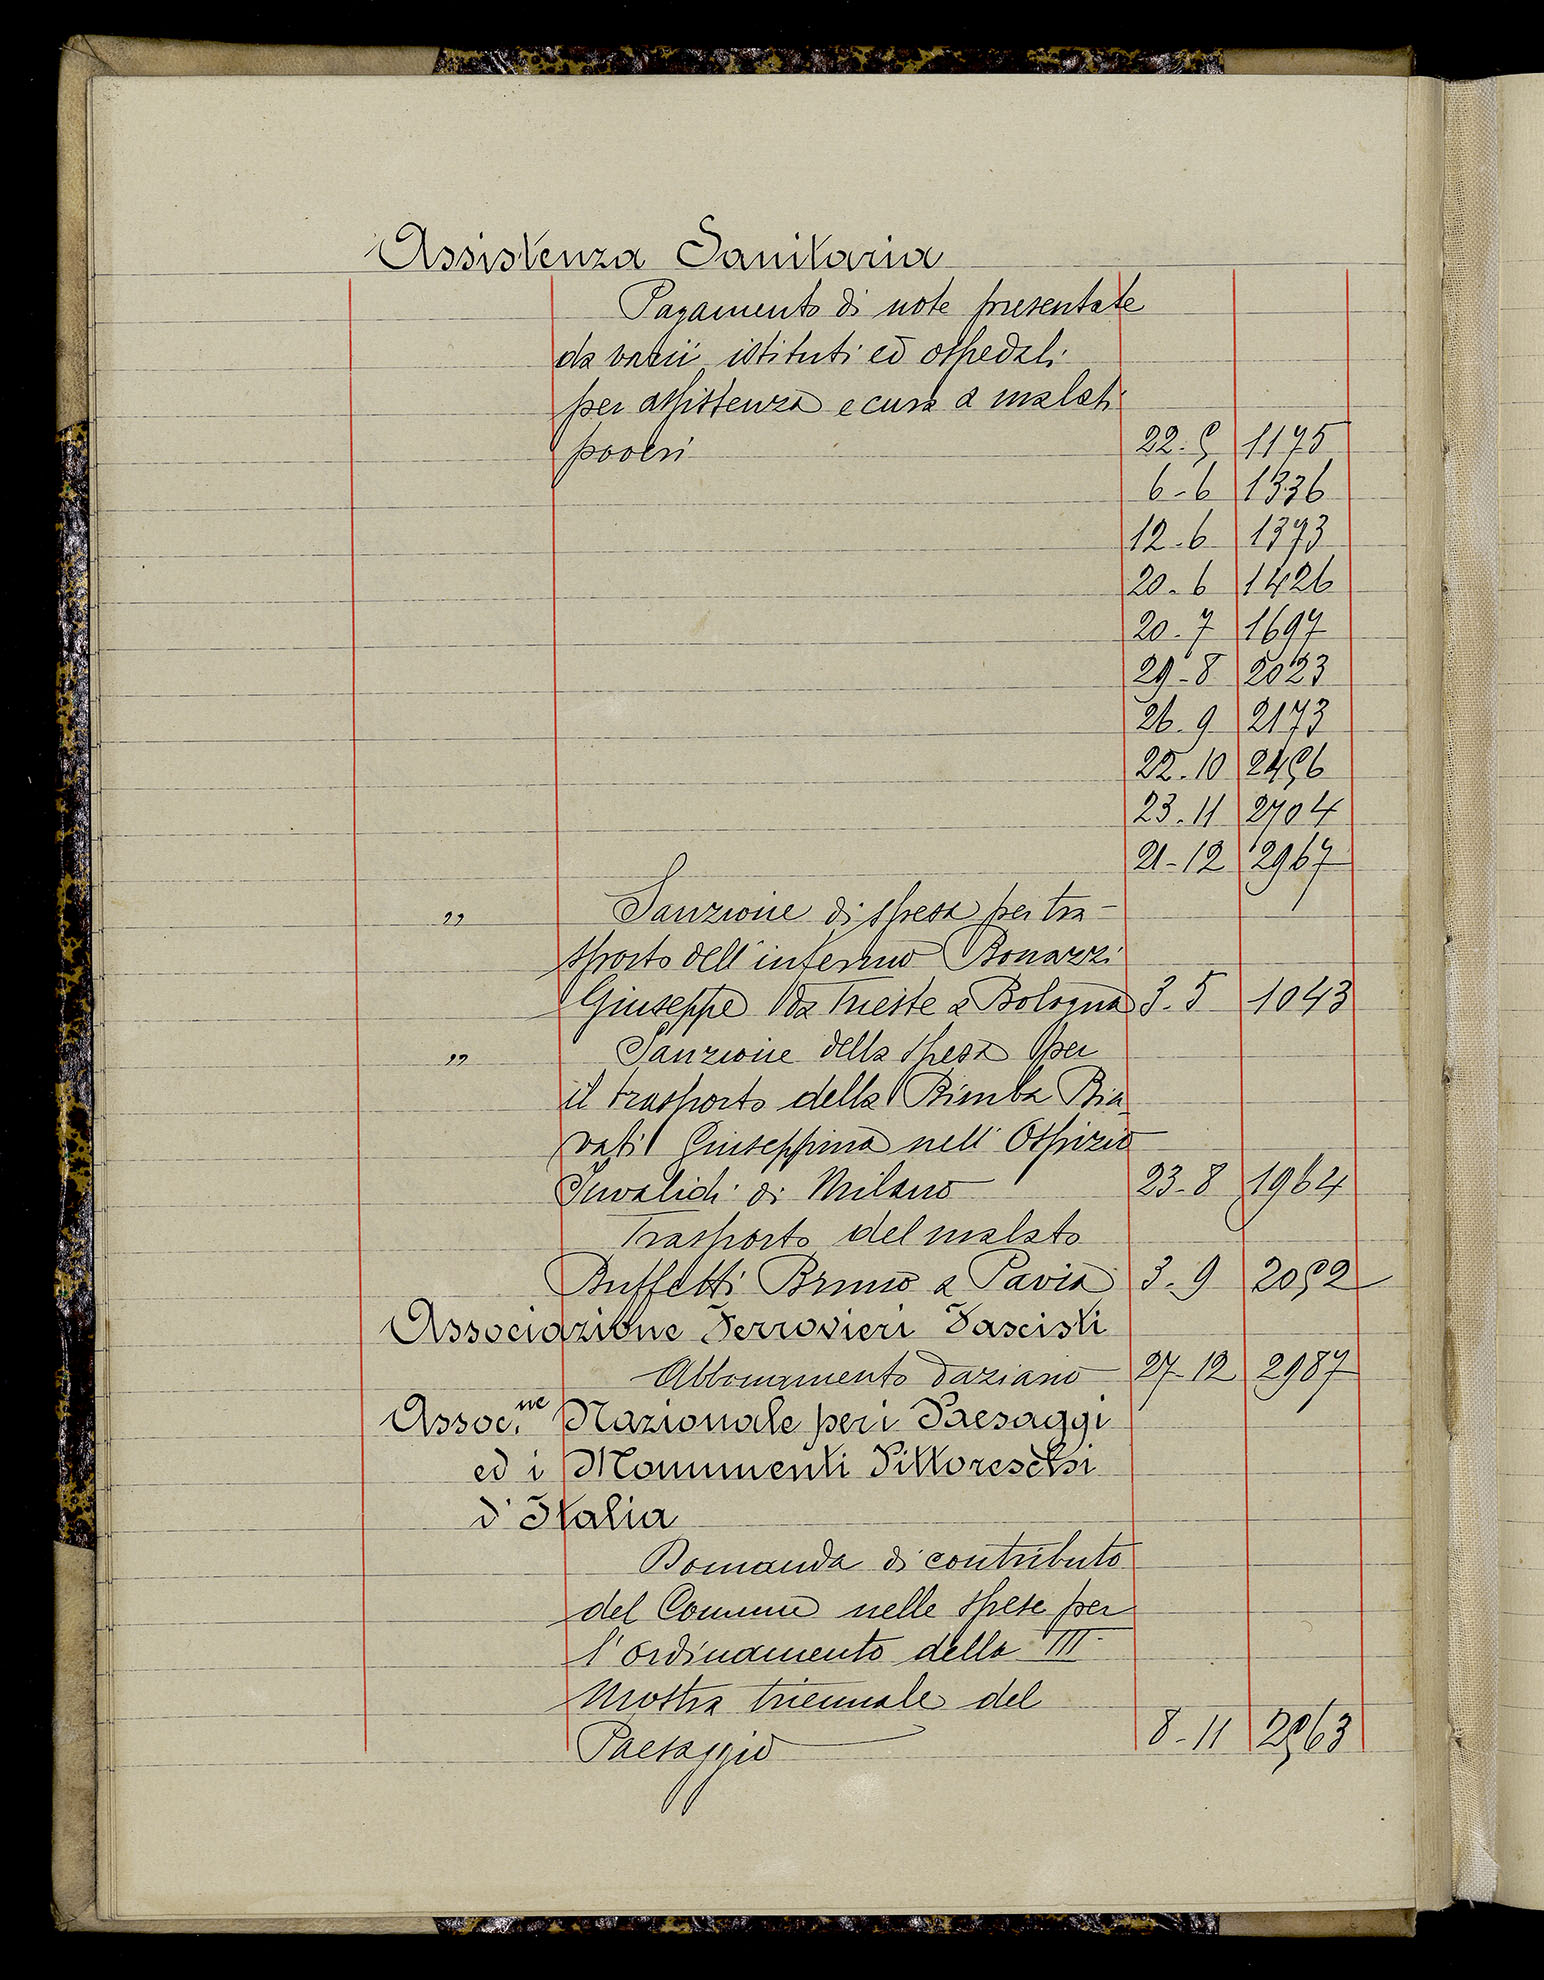 Assistenza Sanitaria
Pagamento di note presentate
da varii istituti ed ospedali
per assistenza e cura a malati
poveri 22-5 1175
6-6 1336
12-6 1373
20-6 1426
20-7 1697
29-8 2023
26-9 2173
22-10 2456
23-11 2704
21-12 2967
" Sanzione di spesa per tra-
sporto dell'infermo Bonazzi
Giuseppe da Trieste a Bologna 3-5 1043
" Sanzione della spesa per
il trasporto della Bimba Bia
vati Giuseppina nell'Ospizio
Invalidi di Milano 23-8 1964
Trasporto del malato
Buffetti Bruno a Pavia 3-9 2052
Associazione Ferrovieri Fascisti
Abbonamento daziario 27-12 2987
Assoc.ne Nazionale per i Paesaggi
ed i Monumenti Pittoreschi
d'Italia
Domanda di contributo
del Comune nelle spese per
l'ordinamento della III
Mostra triennale del
Paesaggio 8-11 2563